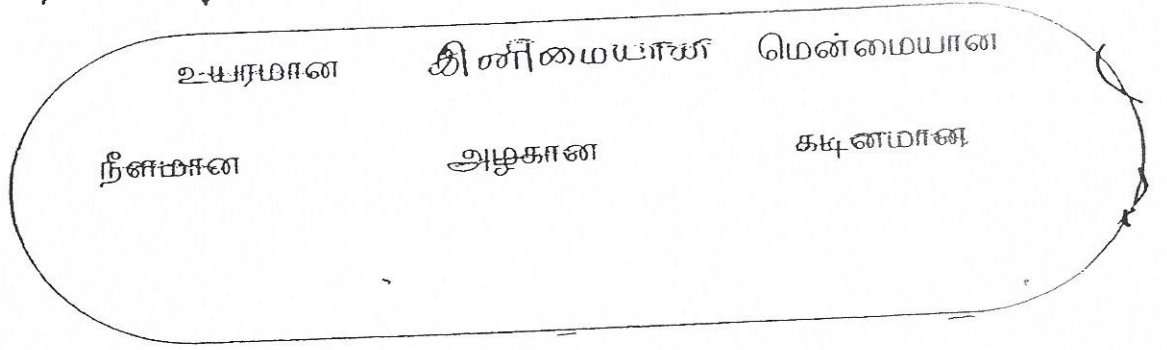 உயரமான இனிமையான மென்மையான
நீளமான அழகான கடினமான